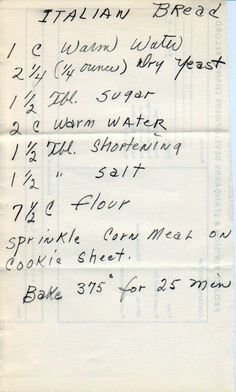 ITALIAN BREad
1 C Warm Water
2 1/4 (1/4 ounce) Dry Yeast
1 1/2 Tbl. Sugar
2 C Warm WATER
1 1/2 Tbl. Shortening
1 1/2 " Salt
7 1/2 C flour
Sprinkle Corn Meal on
Cookie Sheet.
Bake 375° for 25 min